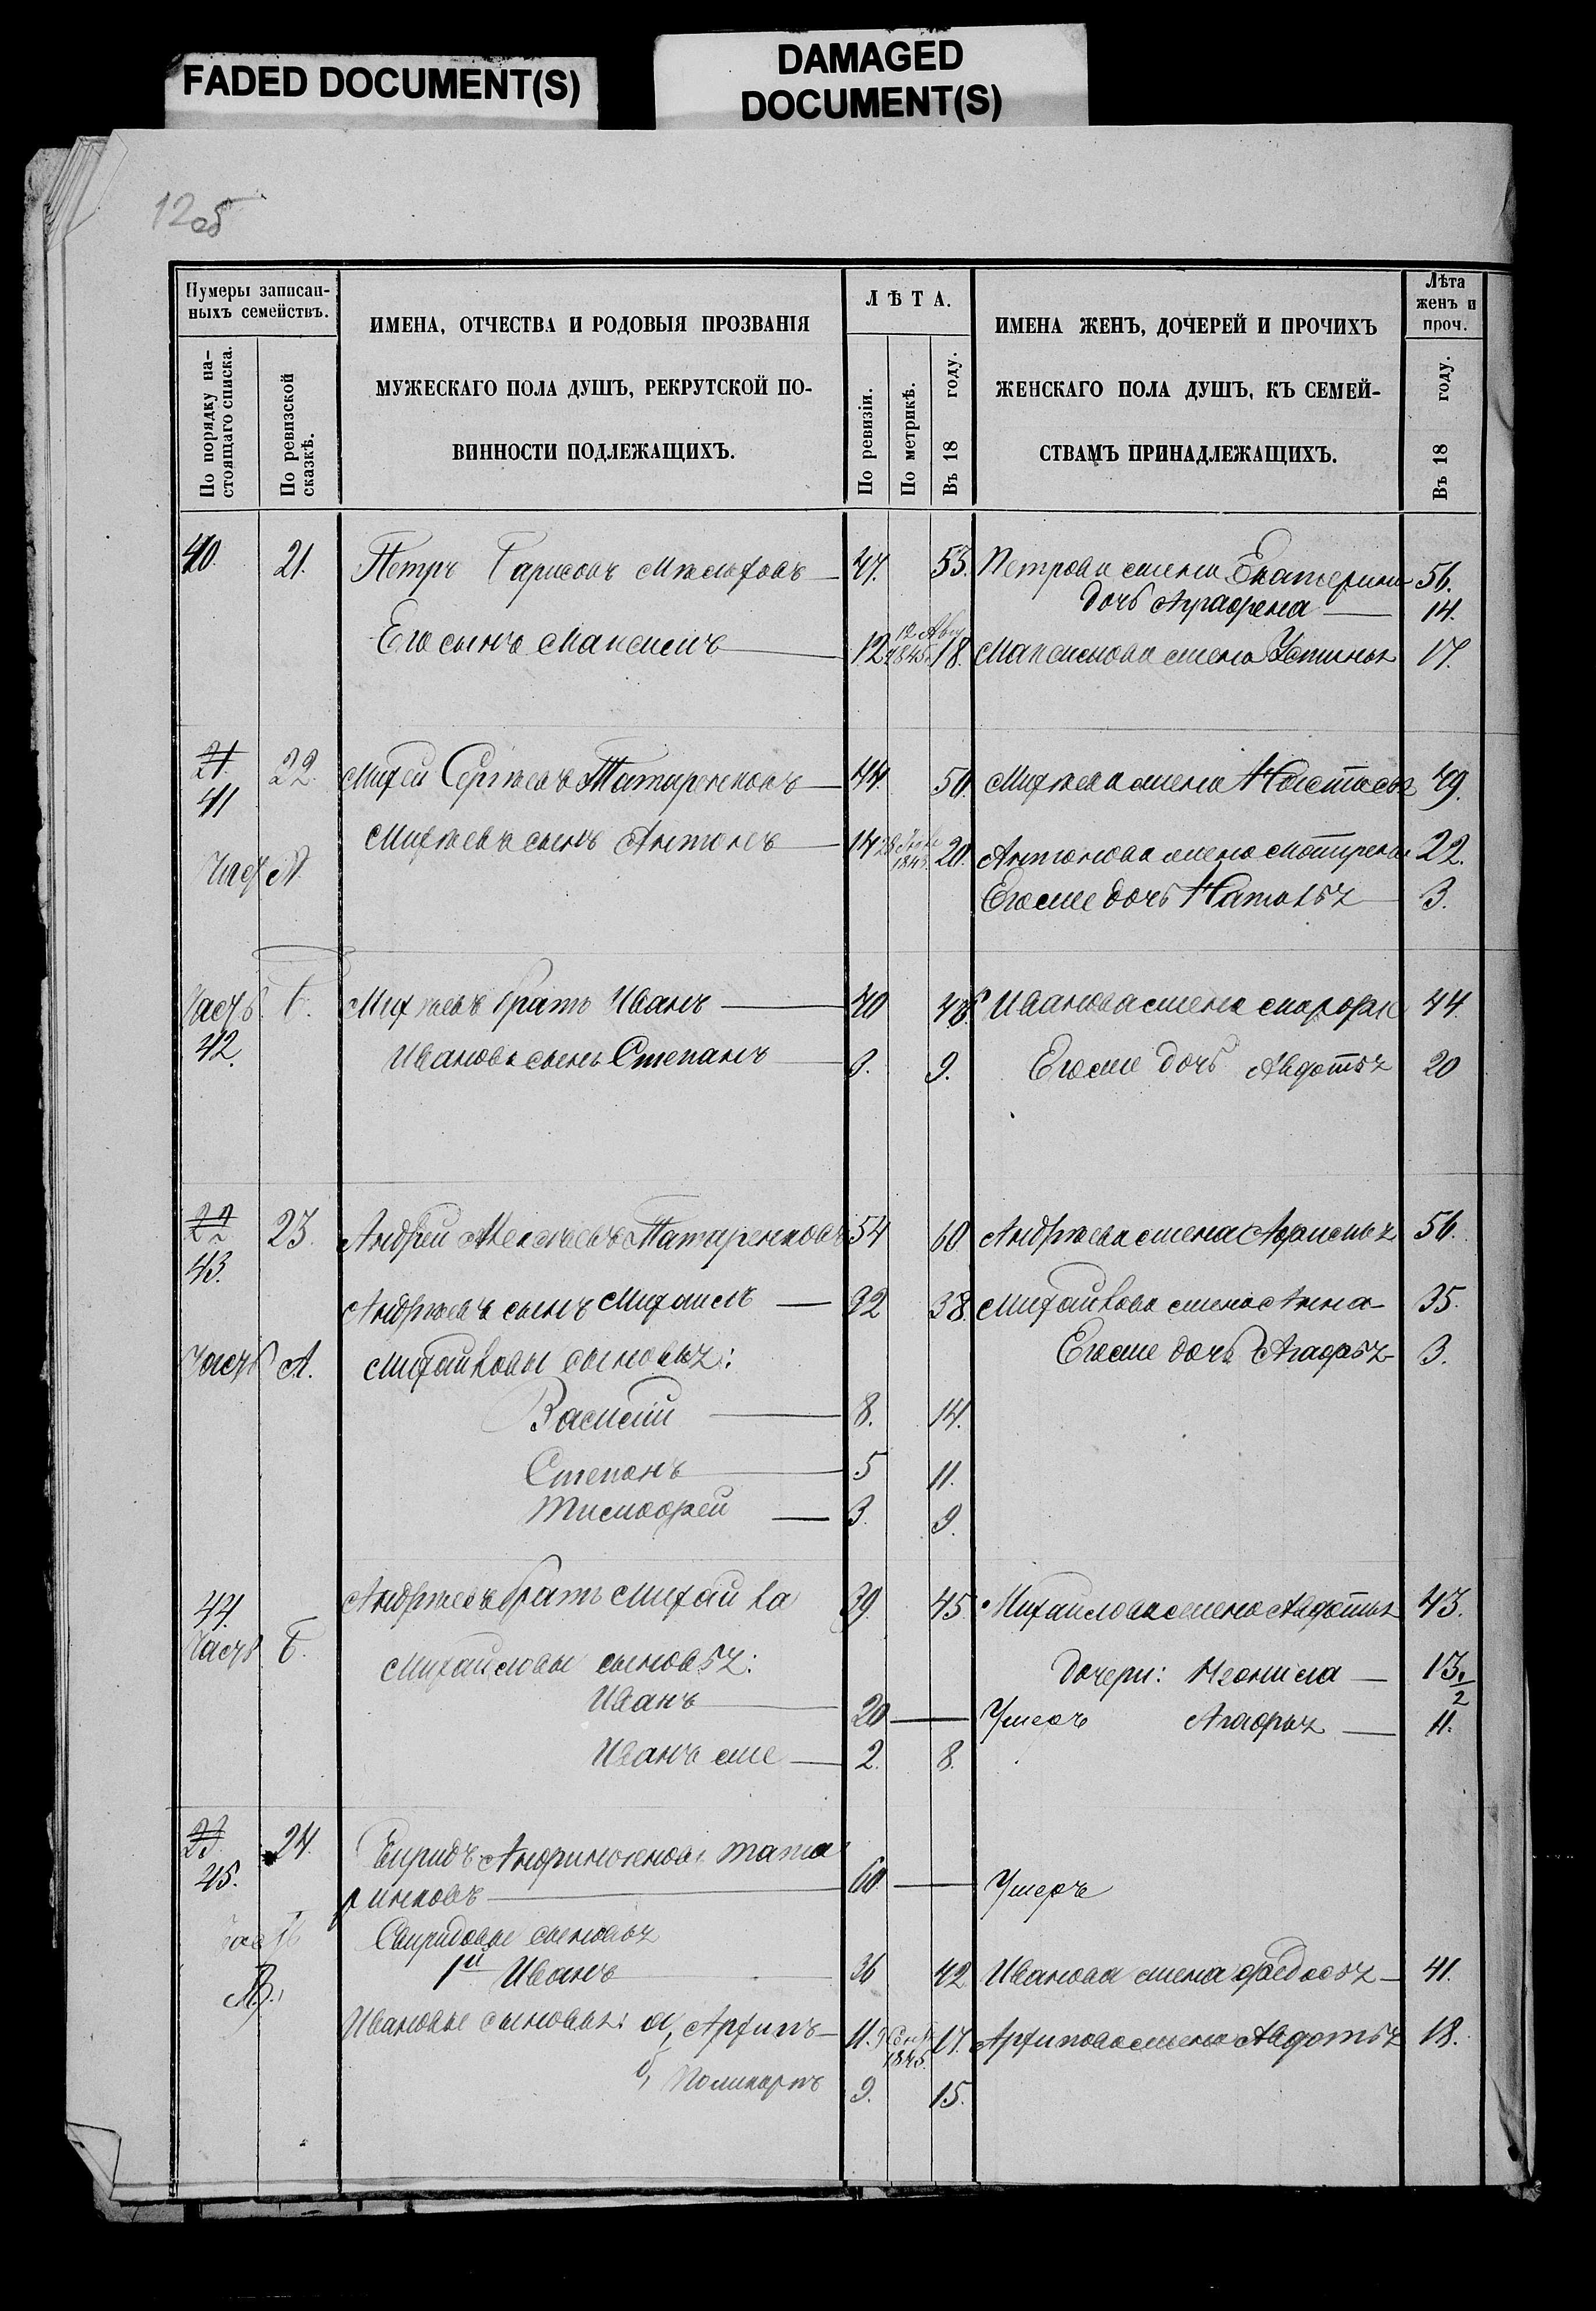 FADED DOCUMENT(S)
DAMAGED
DOCUMENT(S)
12об
Нумеры записан-
ныхъ семействъ.
По порядку на-
стоящаго списка.
По ревизской
сказкѣ.
ИМЕНА, ОТЧЕСТВА И РОДОВЫЯ ПРОЗВАНІЯ
МУЖЕСКАГО ПОЛА ДУШЪ, РЕКРУТСКОЙ ПО-
ВИННОСТИ ПОДЛЕЖАЩИХЪ.
ЛѢТА.
По ревизіи.
По метрикѣ.
Въ 18 году.
ИМЕНА ЖЕНЪ, ДОЧЕРЕЙ И ПРОЧИХЪ
ЖЕНСКАГО ПОЛА ДУШЪ, КЪ СЕМЕЙ-
СТВАМЪ ПРИНАДЛЕЖАЩИХЪ.
Лѣта
женъ и
проч.
Въ 18 году.
40. 21. Петръ 47. 53. Петрова жена Екатерина 56.
дочь Аграфена 14.
Его сынъ Максимъ 12 12 Авгу 1845 18. Максимова жена Устинья 17.
21. 22. Михей Сергѣевъ Татаренковъ 44. 50. Михѣева жена Настасья 49.
41
Михѣевъ сынъ Антонъ 14 1843. 20. Антонова жена Мотрена 22.
Часть А.
Его же дочь Наталья 3.
Часть Б. Михѣевъ братъ Иванъ 40 46. Иванова жена 44.
42. Ивановъ сынъ Степанъ 3. 9. Его же дочь Авдотья 20
22 23. Андрей Алексѣевъ Татаренковъ 54 60 Андрѣева жена Афимья 56.
43.
Андрѣевъ сынъ Михаилъ 32 38. Михайлова жена Анна 35.
Часть А. Михайловы сыновья: Его же дочь Агафья 3.
Василій 8. 14.
Степанъ 5 11.
Тимофей 3. 9.
44. Андрѣевъ братъ Михайла 39. 45. Михайлова жена Авдотья 43.
Часть Б.
Михайловы сыновья: дочери: Неонила 13 1/2
Иванъ 20 Умеръ Агафья 11.
Иванъ же 2. 8.
23. 24. Андриановъ Тата
45. ринковъ 60 Умеръ
Часть Свиридовы сыновья
1й Иванъ 36 42 Иванова жена Федосья 41.
Ивановы сыновья: а, Архипъ 11. Сент 1845. 17. Архипова жена Авдотья 18.
б, Поликарпъ 9. 15.